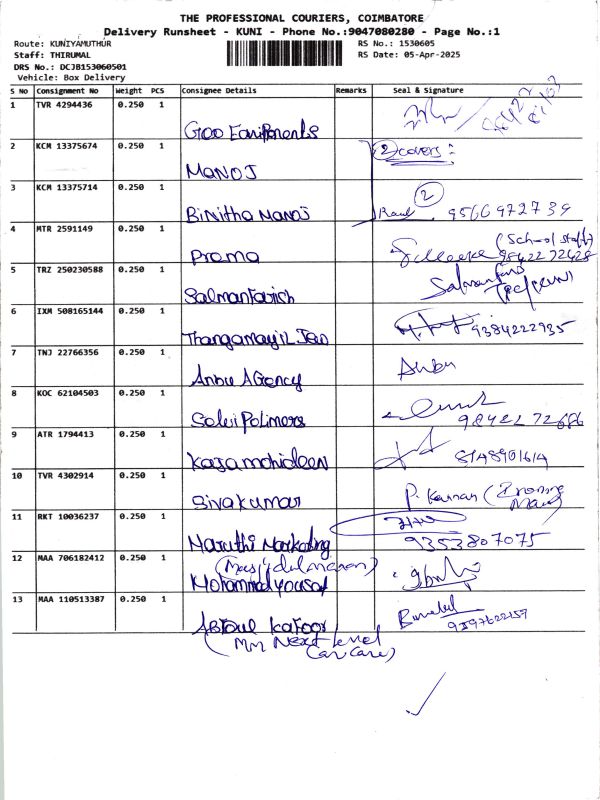 THE PROFESSIONAL COURIERS, COIMBATORE
Delivery Runsheet - KUNI - Phone No.:9047080280 - Page No.:1
Route: KUNIYAMUTHUR
RS No.: 1530605
Staff: THIRUMAL
RS Date: 05-Apr-2025
DRS No.: DCJB153060501
Vehicle: Box Delivery
S No Consignment No Weight PCS Consignee Details Remarks Seal & Signature
1 TVR 4294436 0.250 1
Goo Equipments
2 KCM 13375674 0.250 1
2 covers:
MANOJ
3 KCM 13375714 0.250 1
2
Binitha Manoj 9566972739
4 MTR 2591149 0.250 1
(School staff)
Prema 9842272428
5 TRZ 250230588 0.250 1
Salmanfarish
6 IXM 508165144 0.250 1
9384222935
Thangamayil Jew
7 TNJ 22766356 0.250 1
Anbu
Anbu Agency
8 KOC 62104503 0.250 1
Selvi Polimers 9842272686
9 ATR 1794413 0.250 1
Kajamohideen 8148901614
10 TVR 4302914 0.250 1
P. Kannan
Sivakumar
11 RKT 10036237 0.250 1
Maruthi Marketing 9353807075
12 MAA 706182412 0.250 1
Mohammed yousaf
13 MAA 110513387 0.250 1
9597622157
Abtoul Kafoor
(MM Next level
Car Care)